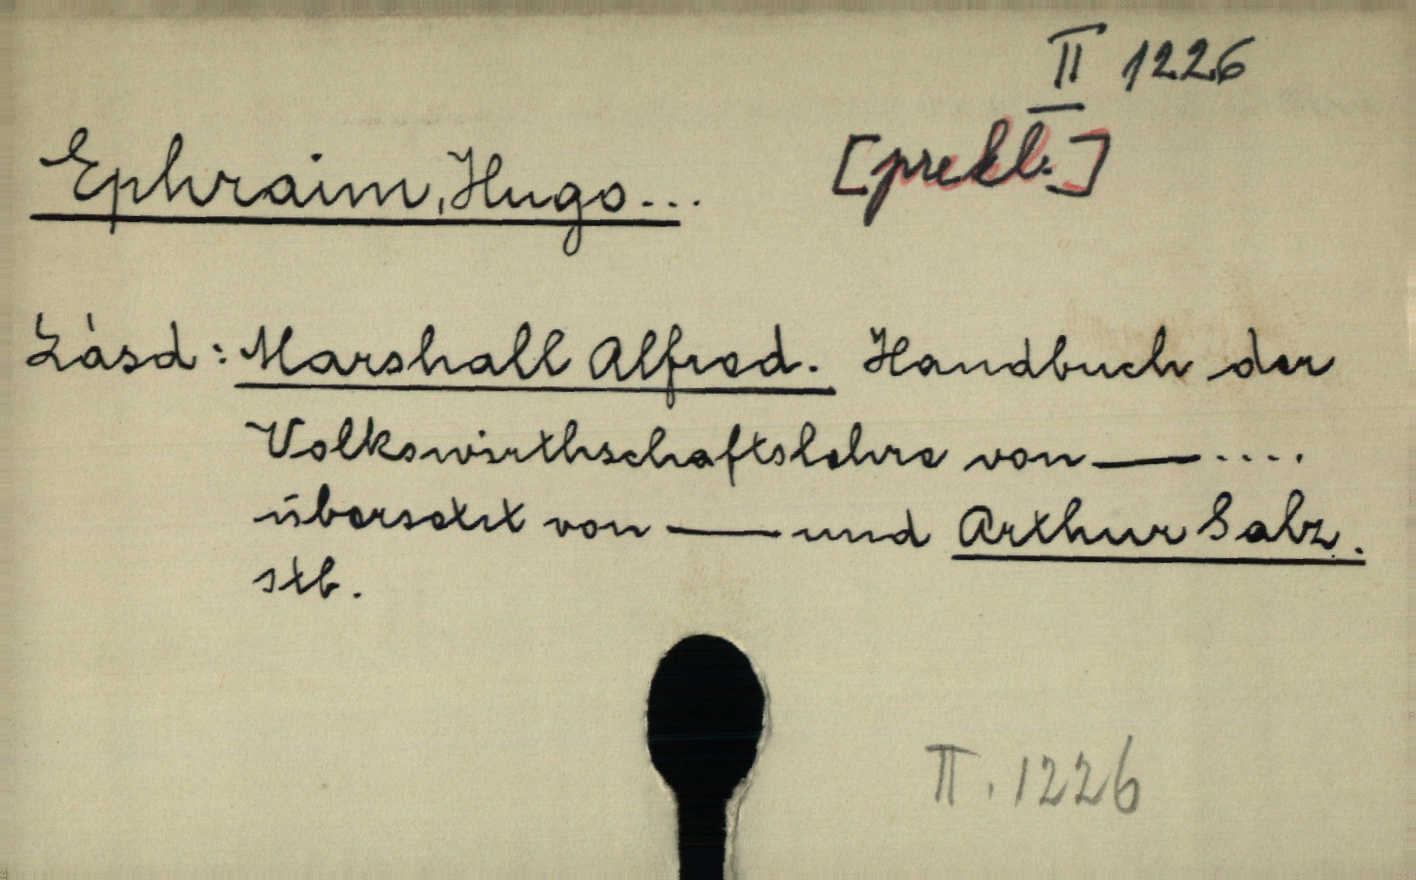 II 1226
Ephraim, Hugo... [prekl.]
Lásd: Marshall Alfred. Handbuch der
Volkswirthschaftslehre von — ....
übersetzt von — und Arthur Salz.
stb.
II. 1226